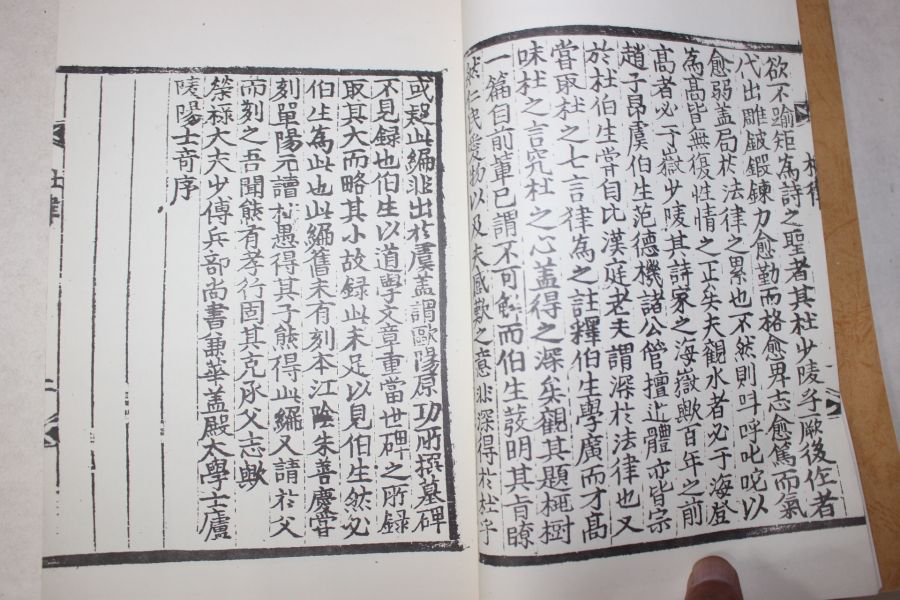 欲不踰矩為詩之聖者其杜少陵乎厥後作者
代出雕鎪鍛鍊力愈勤而格愈卑志愈篤而氣
愈弱盖局於法律之累也不然則叫呼叱咤以
為髙皆無復性情之正矣夫觀水者必于海登
髙者必于嶽少陵其詩家之海嶽歟百年之前
趙子昂虞伯生范德機諸公管擅近體亦皆宗
於杜伯生嘗自比漢庭老夫謂深於法律也又
嘗取杜之七言律為之註釋伯生學廣而才髙
味杜之言究杜之心盖得之深矣觀其題桃樹
一篇自前軰已謂不可觧而伯生發明其旨瞭
然仁民愛物以及夫感歎之意非深得於杜乎
杜律
或疑此編非出於虞盖謂歐陽原功所撰墓碑
不見録也伯生以道學文章重當世碑之所録
取其大而略其小故録此未足以見伯生然必
伯生為此也此編舊未有刻本江陰朱善慶嘗
刻單陽元讀杜愚得其子熊得此編又請於父
而刻之吾聞熊有孝行固其克承父志歟
榮禄大夫少傅兵部尚書兼華盖殿大學士廬
陵陽士奇序